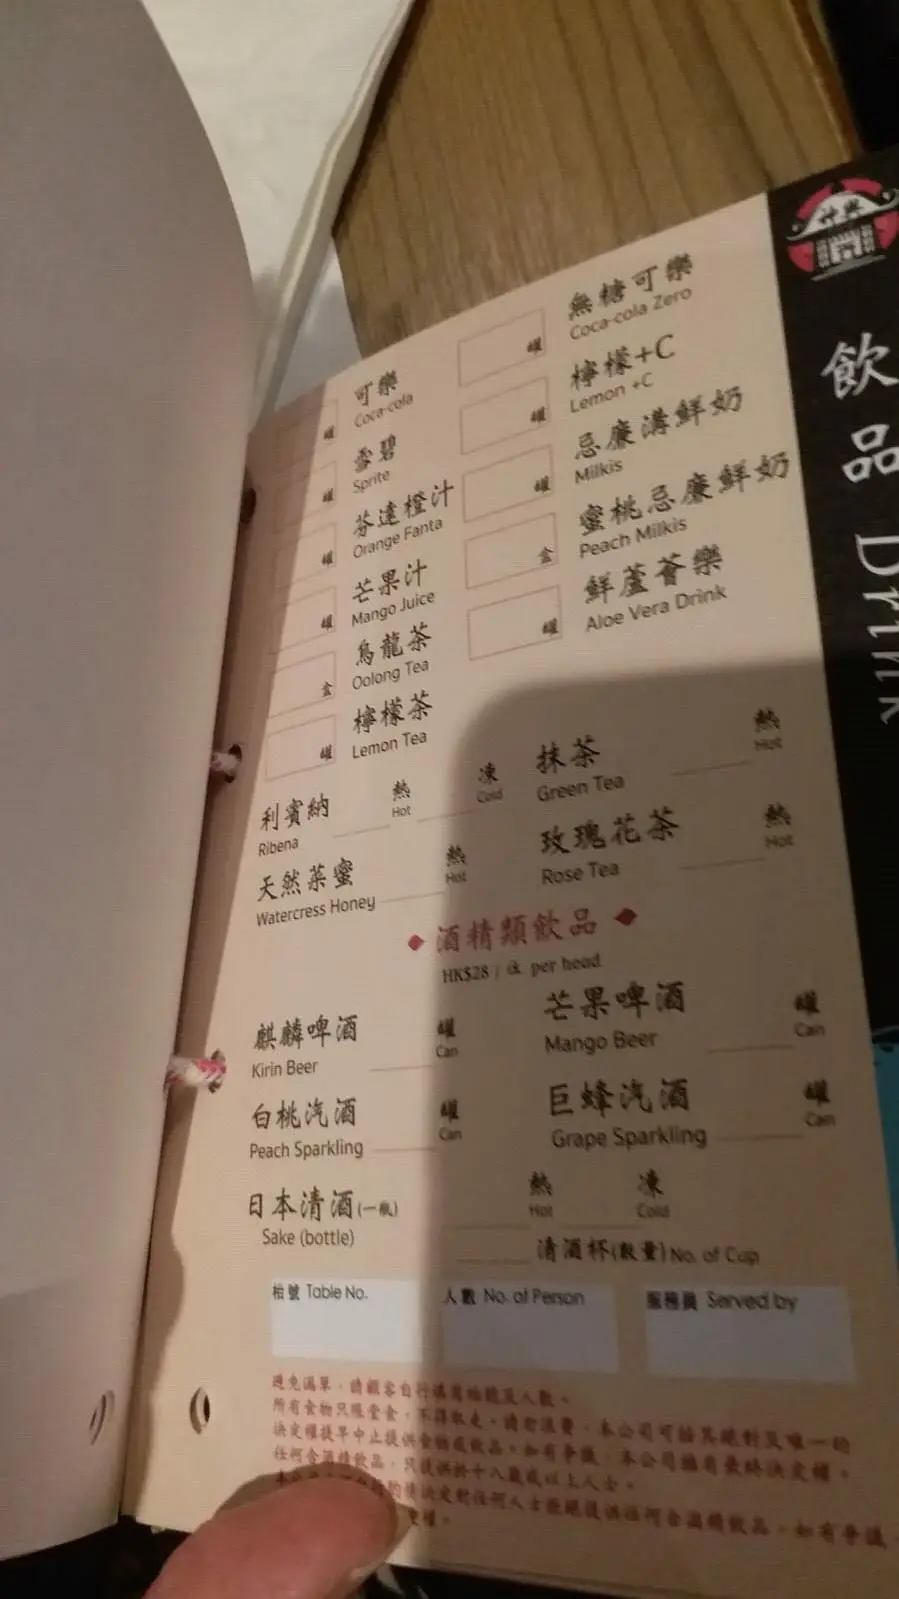 神樂
飲品 Drink
罐 可樂
Coca-cola
罐 雪碧
Sprite
罐 芬達橙汁
Orange Fanta
罐 芒果汁
Mango Juice
盒 烏龍茶
Oolong Tea
罐 檸檬茶
Lemon Tea
罐 無糖可樂
Coca-cola Zero
罐 檸檬+C
Lemon +C
罐 忌廉溝鮮奶
Milkis
盒 蜜桃忌廉鮮奶
Peach Milkis
罐 鮮蘆薈樂
Aloe Vera Drink
利賓納 熱 凍
Ribena Hot Cold
抹茶 熱
Green Tea Hot
天然菜蜜 熱
Watercress Honey Hot
玫瑰花茶 熱
Rose Tea Hot
酒精類飲品
HK$28 / 位 per head
麒麟啤酒 罐
Kirin Beer Can
芒果啤酒 罐
Mango Beer Can
白桃汽酒 罐
Peach Sparkling Can
巨蜂汽酒 罐
Grape Sparkling Can
日本清酒(一瓶) 熱 凍
Sake (bottle) Hot Cold
清酒杯(數量) No. of Cup
枱號 Table No.
人數 No. of Person
服務員 Served by
避免漏單，請顧客自行填寫枱號及人數。
所有食物只限堂食，不得取走。請勿浪費，本公司可給其絕對及唯一的
決定權提早中止提供食物或飲品。如有爭議，本公司擁有最終決定權。
任何含酒精飲品，只提供於十八歲或以上人士。
決定對任何人士拒絕提供任何含酒精飲品，如有爭議，
權。